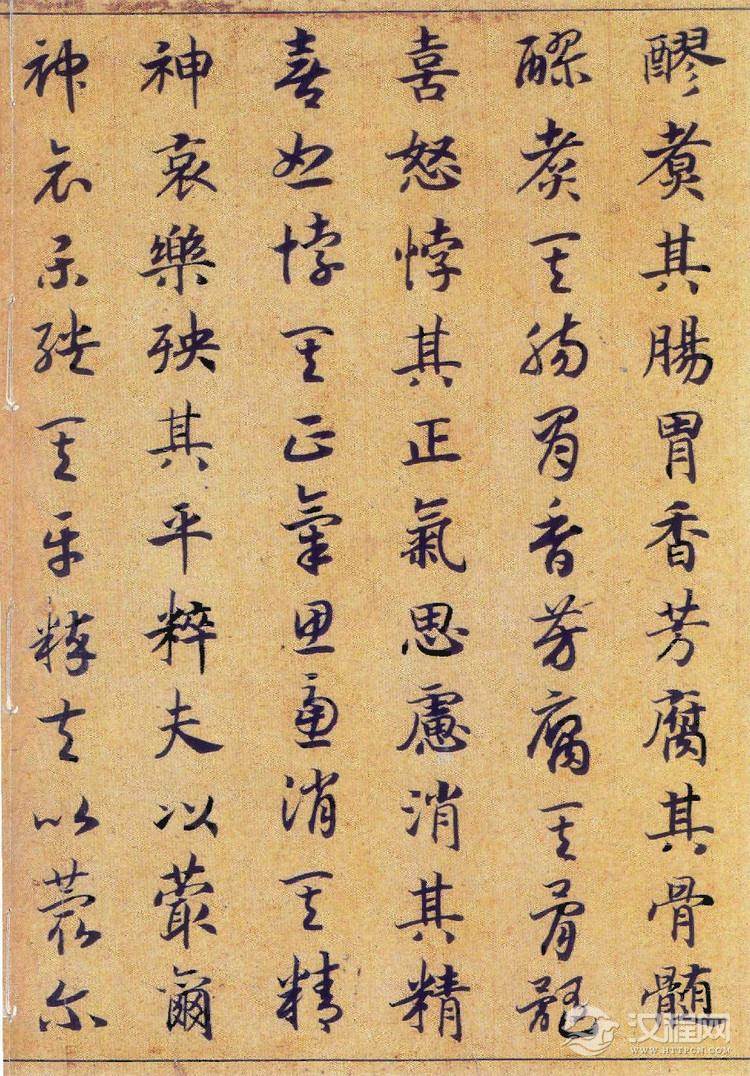 醪煑其腸胃香芳腐其骨髓
醪煑其腸胃香芳腐其骨髓
喜怒悖其正氣思慮消其精
喜怒悖其正氣思慮消其精
神哀樂殃其平粹夫以蕞爾
神哀樂殃其平粹夫以蕞爾
汉程网
WWW.HTTPCN.COM